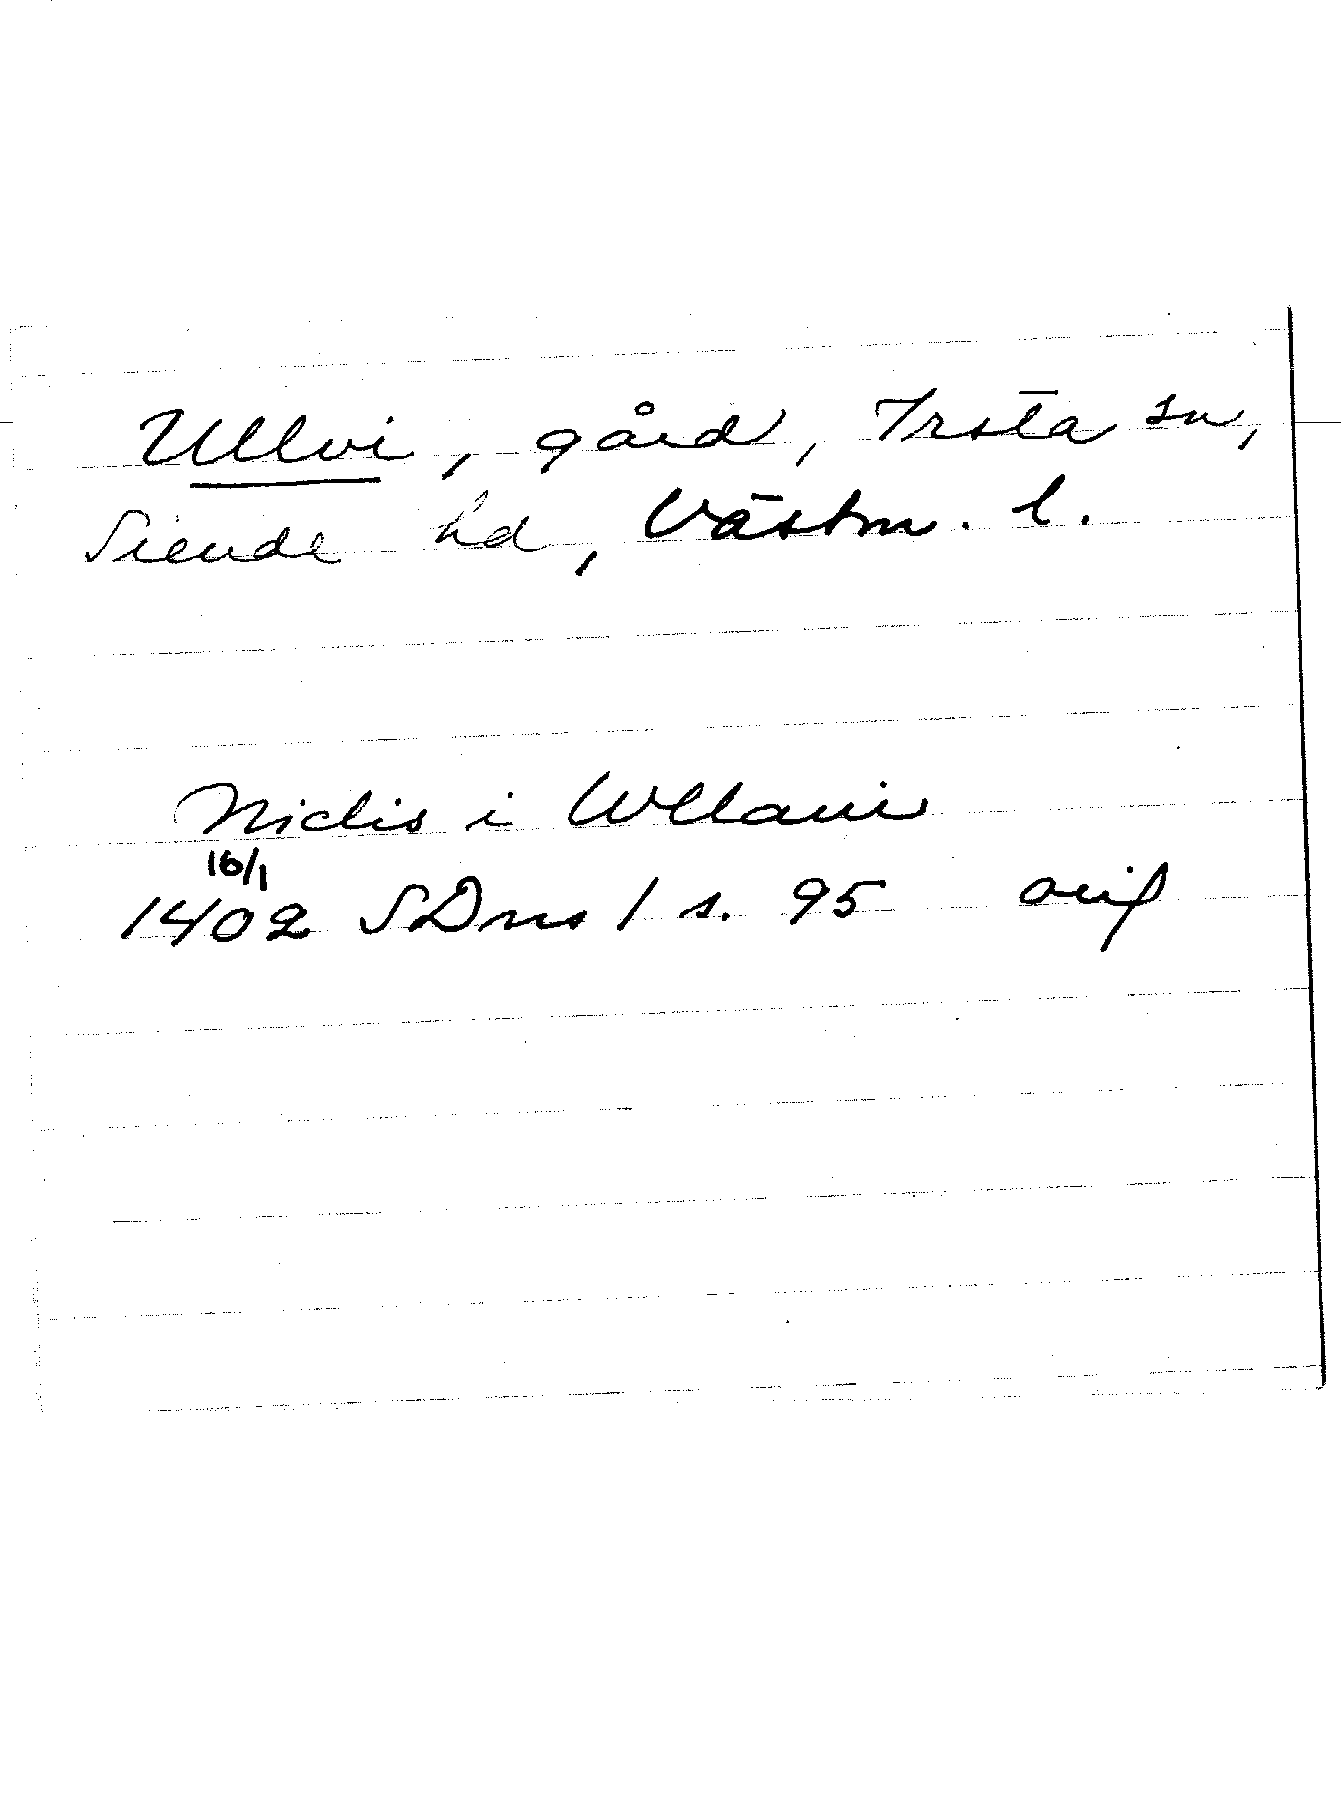 Ullvi, gård, Irsta sn,
Siende hd, Västm. l.
Niclis i Wllaui
16/1
1402 SDns 1 s. 95 orig